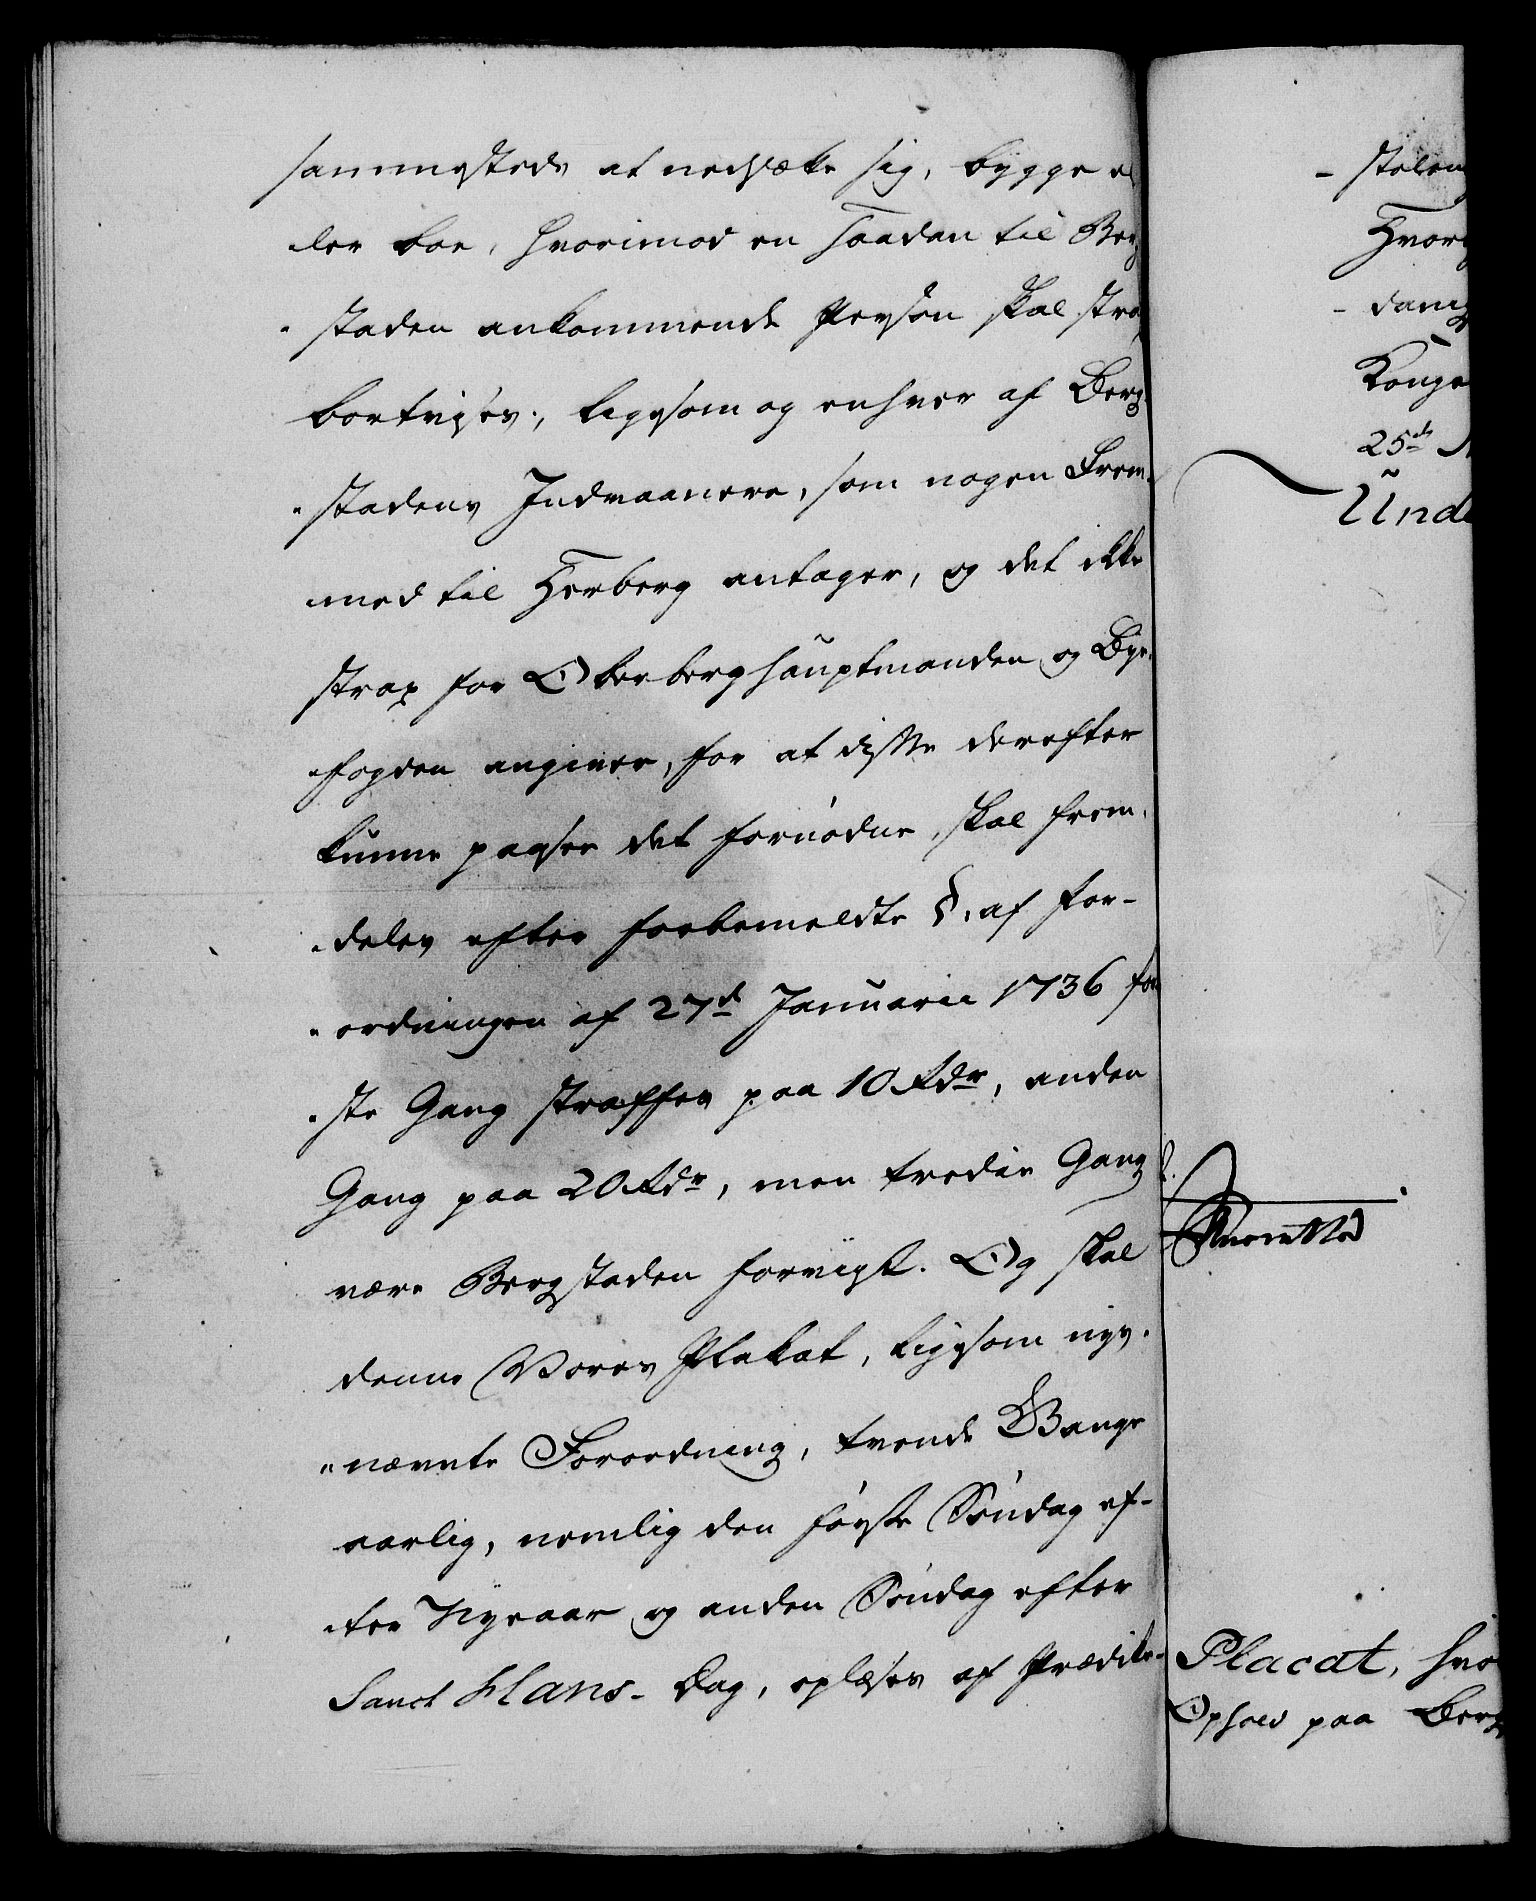 sammesteds at nedsætte sig, bygge el
ler boe, hvorimod en saadan til Berg
staden ankommende Person skal strax
bortvises, ligesom og enhver af Berg-
stadens Indvaanere, som nogen Frem-
med til Herberg antager, og det ikke
strax for Oberberghauptmanden og Bye-
fogden angiver, for at disse derefter
kunne paasee det fornødne, skal frem-
deles efter forbemeldte §. af For-
ordningen af 27d Januarii 1736 før
ste Gang straffes paa 10 Rdr, anden
Gang paa 20 Rdr, men tredie Gang
være Bergstaden forviist. Og skal
denne Vores Plakat, ligesom nys-
nævnte Forordning, tvende Gange
aarlig, nemlig den første Søndag ef-
ter Nyeaar og anden Søndag efter
Sanct Hans-Dag, oplæses af Prædike-
stolen
Hvor
danig
Konge
25de
Unde
Placat, hvo
Ophold paa Berg